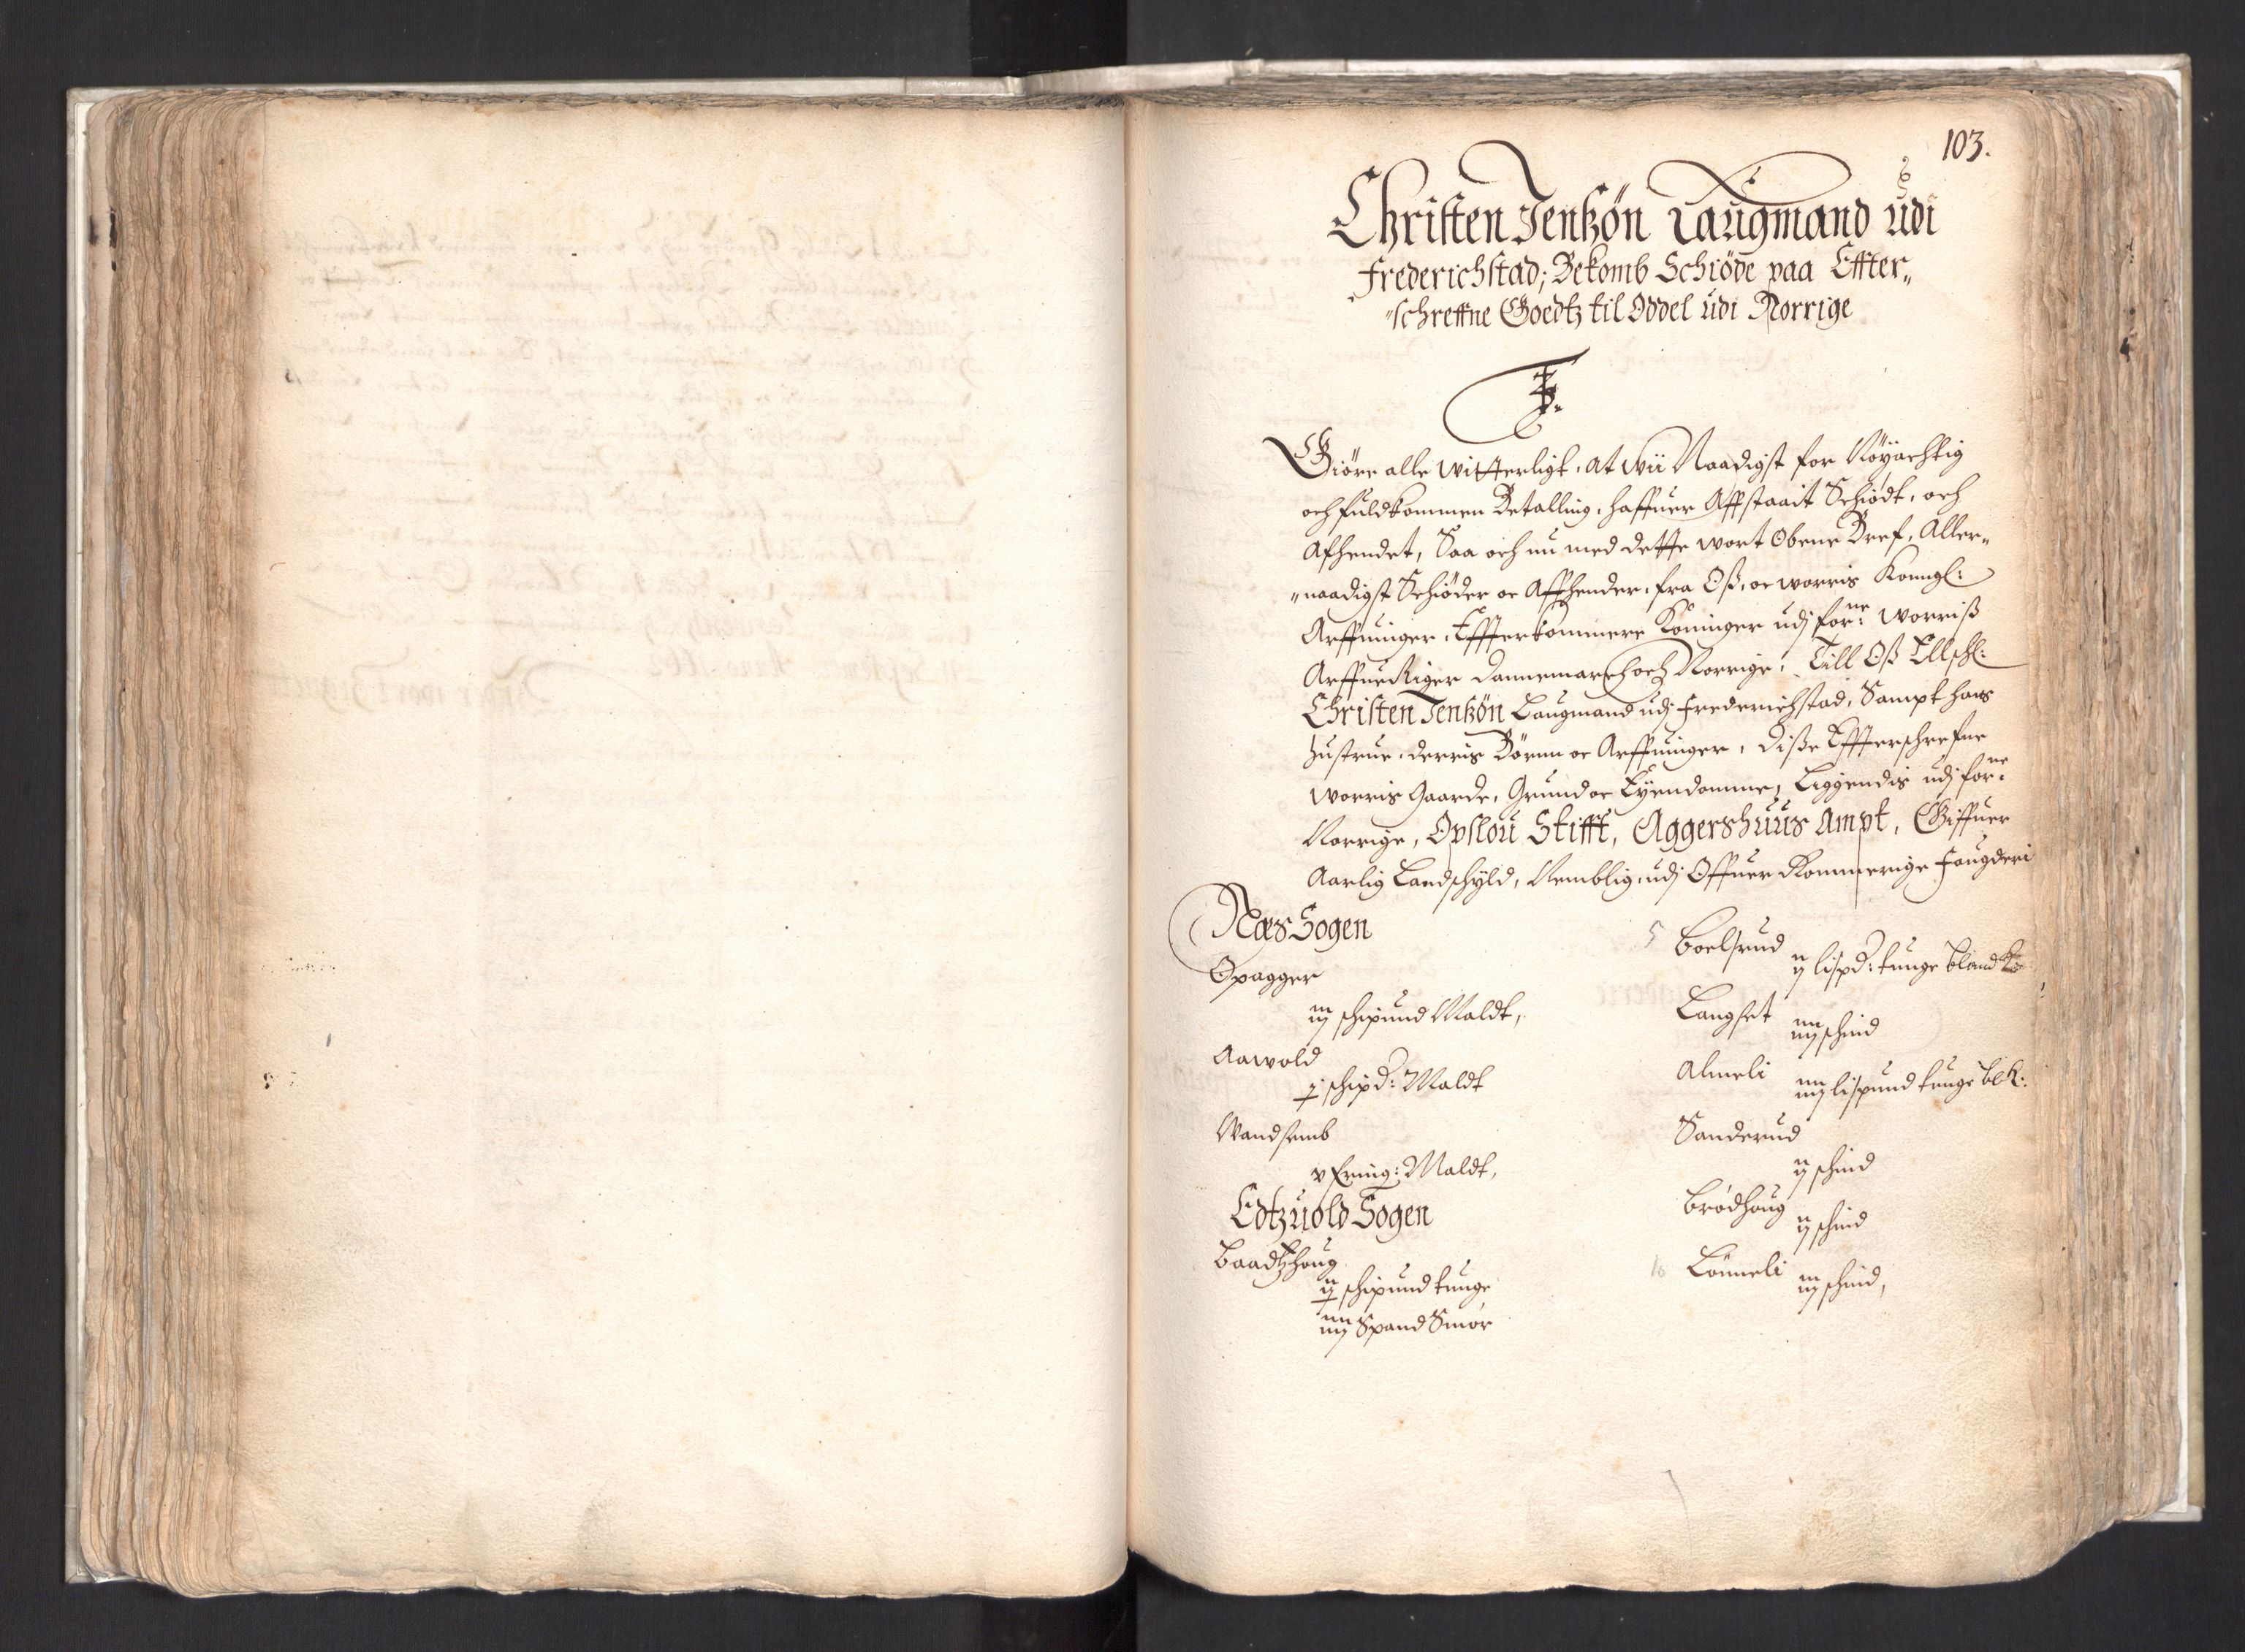 103.
Christen Jenßön Laugmand udi
Frederichstad; Bekomb Schiöde paa Effter„
„schreffne Goedtz til Oddel udi Norrige
F.
Giöre alle witterligt, at wii Naadigst for Nöyachtig
och fuldkommen Betalling, haffuer Affstaait Schiödt, och
Afhendet, Saa och nu med dette wort Obene Bref, Aller„
„naadigst Schiöder oc Affhender, fra Oß, oc worris Konngl:
Arffuinger, Effterkommere Koninger udj forne: worriß
Arffue Riger Dannemarch och Norrige, Till Oß Ellschl:
Christen Jenßön Laugmand udj Frederichstad, Sampt hans
Hustrue, derris Börnn oc Arffuinger, Disse Effterschrefne
worris Gaarde, Grund oc Eyendomme, Liggendis udj forne:
Norrige, Opslou Stifft, Aggershuus Ampt, Giffuer
Aarlig Landschyld, Nemblig, udj Offuer Rommerige Faugderi
Næs Sogen
Opagger
iij schipund Maldt,
Aawold
j schipd: Maldt
Wandsemb
v Fering: Maldt,
Edtzuold Sogen
Baadtzhoug
ij schipund tunge
iiij Spand Smör
5 Boelsrud
ij lispd: tunge bland Ko
Langset
iiij schind
Almeli
iiij lispund tunge bl K:
Sanderud
ij schind
Brödhoug
ij schind
10 Lönneli
iij schind,